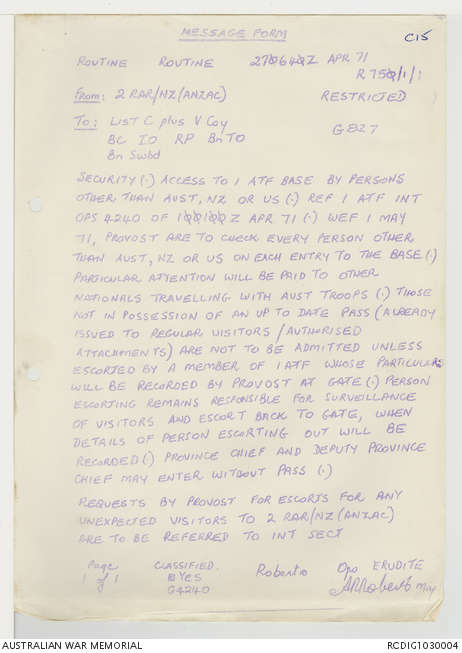 MESSAGE FORM
C15
ROUTINE ROUTINE 270640Z APR 71
R750/1/1
From: 2 RAR/NZ (ANZAC) RESTRICTED
To: LIST C plus V Coy G827
BC IO RP Bn TO
Bn Swbd
SECURITY (.) ACCESS TO 1 ATF BASE BY PERSONS
OTHER THAN AUST, NZ OR US (.) REF 1 ATF INT
OPS 4240 OF 100100Z APR 71 (.) WEF 1 MAY
71, PROVOST ARE TO CHECK EVERY PERSON OTHER
THAN AUST, NZ OR US ON EACH ENTRY TO THE BASE (.)
PARTICULAR ATTENTION WILL BE PAID TO OTHER
NATIONALS TRAVELLING WITH AUST TROOPS (.) THOSE
NOT IN POSSESSION OF AN UP TO DATE PASS (ALREADY
ISSUED TO REGULAR VISITORS / AUTHORISED
ATTACHMENTS) ARE NOT TO BE ADMITTED UNLESS
ESCORTED BY A MEMBER OF 1 ATF WHOSE PARTICULARS
WILL BE RECORDED BY PROVOST AT GATE (.) PERSON
ESCORTING REMAINS RESPONSIBLE FOR SURVEILLANCE
OF VISITORS AND ESCORT BACK TO GATE, WHEN
DETAILS OF PERSON ESCORTING OUT WILL BE
RECORDED (.) PROVINCE CHIEF AND DEPUTY PROVINCE
CHIEF MAY ENTER WITHOUT PASS (.)
REQUESTS BY PROVOST FOR ESCORTS FOR ANY
UNEXPECTED VISITORS TO 2 RAR/NZ (ANZAC)
ARE TO BE REFERRED TO INT SECT
Page CLASSIFIED. Roberts Ops ERUDITE
1 of 1 YES ARRoberts Maj
G4240
AUSTRALIAN WAR MEMORIAL RCDIG1030004